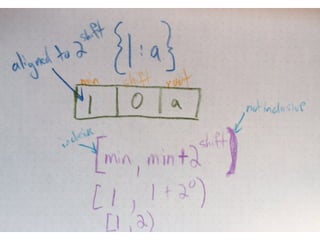 aligned to 2^shift
{1:a}
min shift root
1 0 a
inclusive
not inclusive
[min, min+2^shift)
[1, 1+2^0)
[1,2)